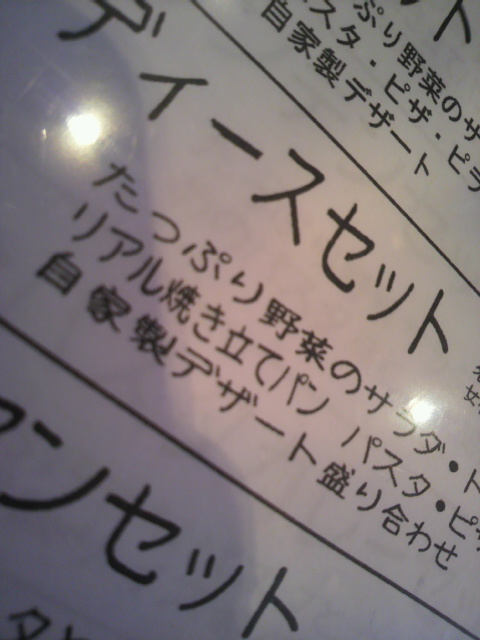 ット
ぷり野菜のサ
スタ・ピザ・ピラ
自家製デザート
ディースセット
たっぷり野菜のサラダ・
リアル焼き立てパン パスタ・ピザ
自家製デザート盛り合わせ
ンセット